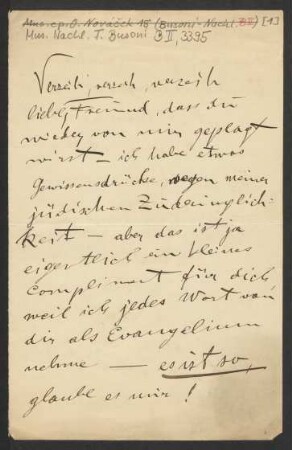 Mus. ep. O. Nováček 16 (Busoni-Nachl. B II) [1]
Mus. Nachl. F. Busoni B II, 3395
Verzeih, verzeih, verzeih
liebster Freund, dass du
wieder von mir geplagt
wirst – ich habe etwas
Gewissensdrücke, wegen meiner
jüdischen Zudringlich-
keit – aber das ist ja
eigentlich ein kleines
Compliment für dich
weil ich jedes Wort von
dir als Evangelium
nehme — es ist so,
glaube es mir!